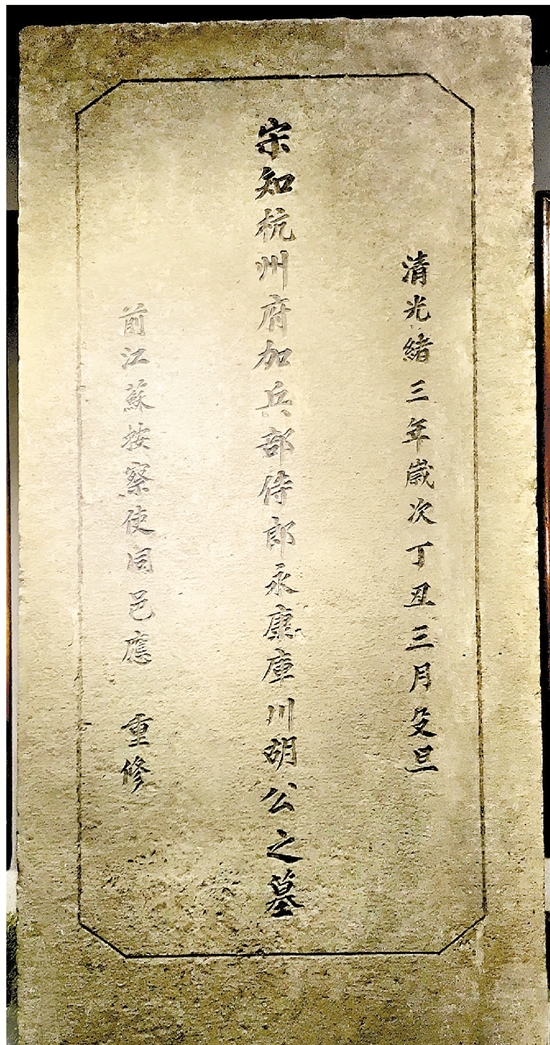 清光緒三年歲次丁丑三月旦
宋知杭州府加兵部侍郎永康庫川胡公之墓
前江蘇按察使同邑應 重修